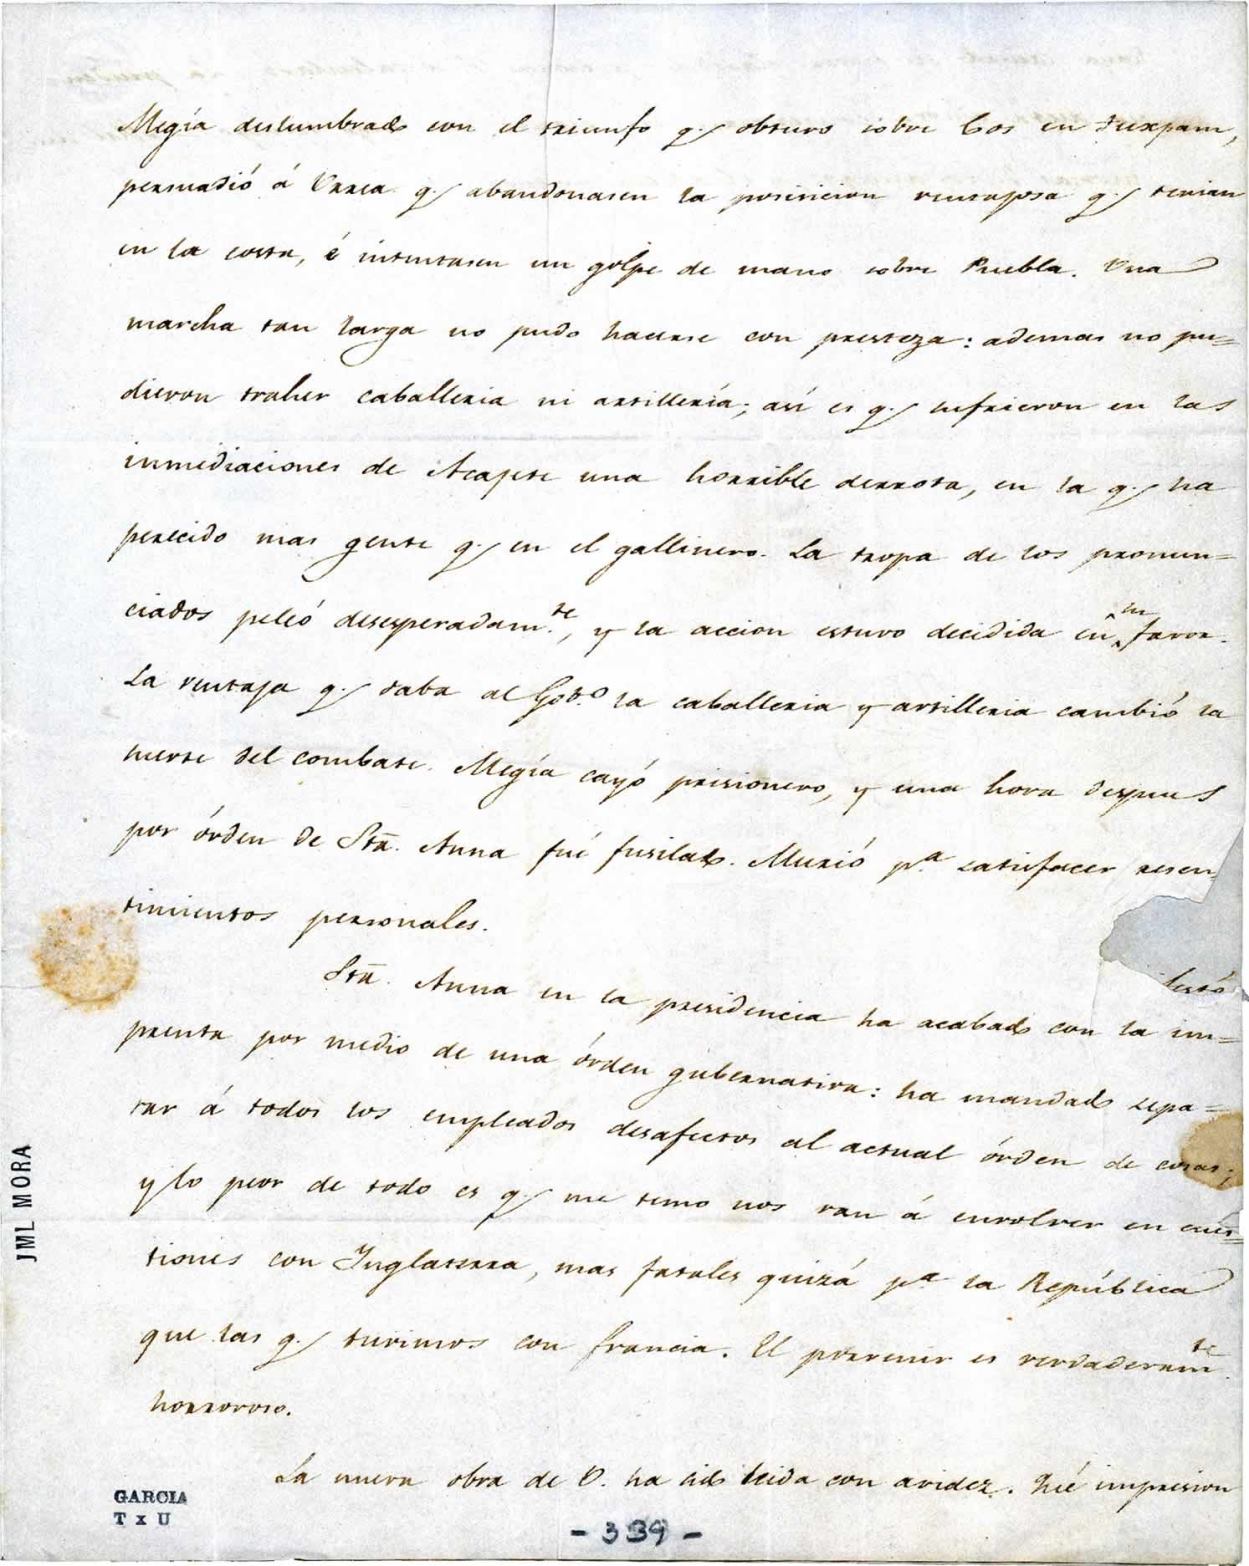 Megía deslumbrado con el triunfo q. obtuvo sobre Cos en Tuxpam,
persuadió á Urrea q. abandonasen la posicion ventajosa q. tenian
en la costa, é intentasen un golpe de mano sobre Puebla. Una
marcha tan larga no pudo hacerse con presteza: ademas no pu=
dieron traher caballeria ni artillería; así es q. sufrieron en las
inmediaciones de Acajete una horrible derrota, en la q. ha
perecido mas gente q. en el gallinero. La tropa de los pronun=
ciados peleó desesperadam.te, y la accion estuvo decidida en su favor.
La ventaja q. daba al Gob.o la caballeria y artilleria cambió la
suerte del combate. Megía cayó prisionero, y una hora despues
por órden de Sta. Anna fué fusilado. Murió p.a satisfacer resen=
timientos personales.
Sta. Anna en la presidencia ha acabado con la im=
prenta por medio de una órden gubernativa: ha mandado sepa=
rar á todos los empleados desafectos al actual órden de cosas;
y lo peor de todo es q. me temo nos van á envolver en cues=
tiones con Inglaterra, mas fatales quizá p.a la República
que las q. tuvimos con francia. El porvenir es verdaderam.te
horroroso.
La nueva obra de V. ha sido leida con avidez. Qué impresion
JML MORA
GARCIA
T x U
- 339 -